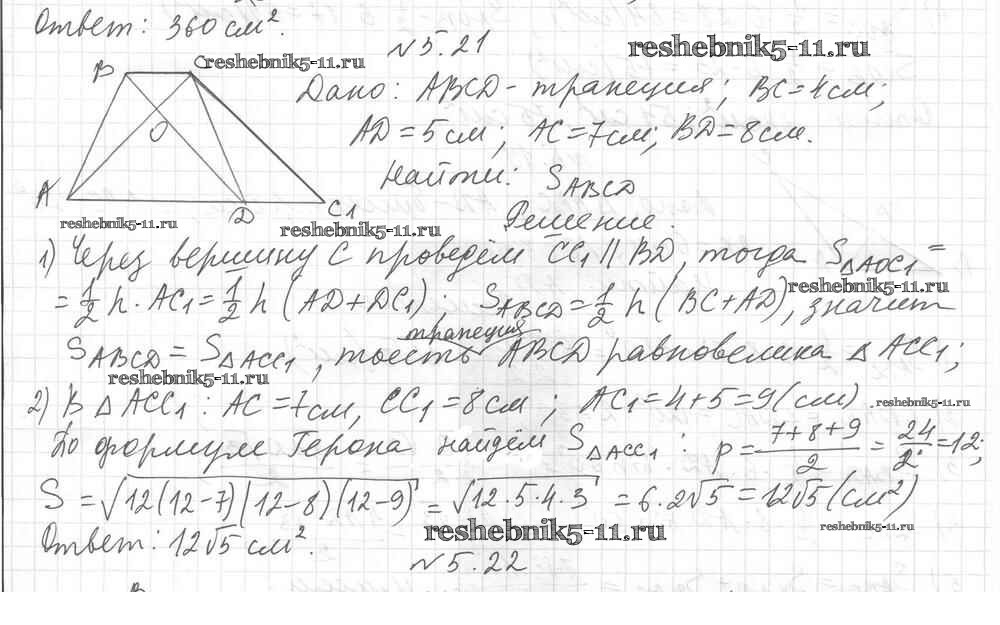 Ответ: 360 см².
N 5.21
reshebnik5-11.ru
B C reshebnik5-11.ru
Дано: ABCD - трапеция; BC = 4 см;
O
AD = 5 см; AC = 7 см; BD = 8 см.
Найти: S_ABCD
A D C1
reshebnik5-11.ru
reshebnik5-11.ru
Решение.
1) Через вершину C проведём CC1 || BD, тогда S_ΔACC1 =
reshebnik5-11.ru
= 1/2 h · AC1 = 1/2 h (AD + DC1); S_ABCD = 1/2 h (BC + AD), значит
трапеция
S_ABCD = S_ΔACC1, тоесть ABCD равновелика Δ ACC1;
reshebnik5-11.ru
2) В Δ ACC1: AC = 7 см, CC1 = 8 см; AC1 = 4 + 5 = 9 (см)
reshebnik5-11.ru
По формуле Герона найдём S_ΔACC1: p = (7+8+9)/2 = 24/2 = 12;
S = √12(12-7)(12-8)(12-9) = √12·5·4·3 = 6·2√5 = 12√5 (см²)
reshebnik5-11.ru
reshebnik5-11.ru
Ответ: 12√5 см².
N 5.22
B